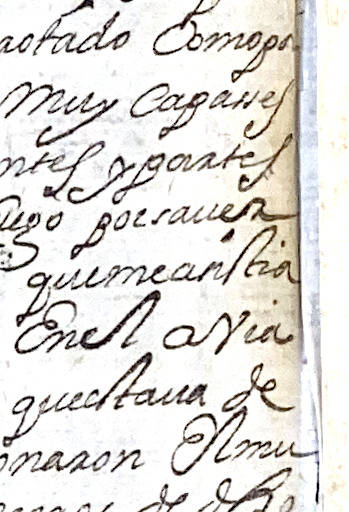 aotado Comopor
muy Capases
ntes y partes
luego por saver
que me asistia
En el avia
que estava de
onaron El mu